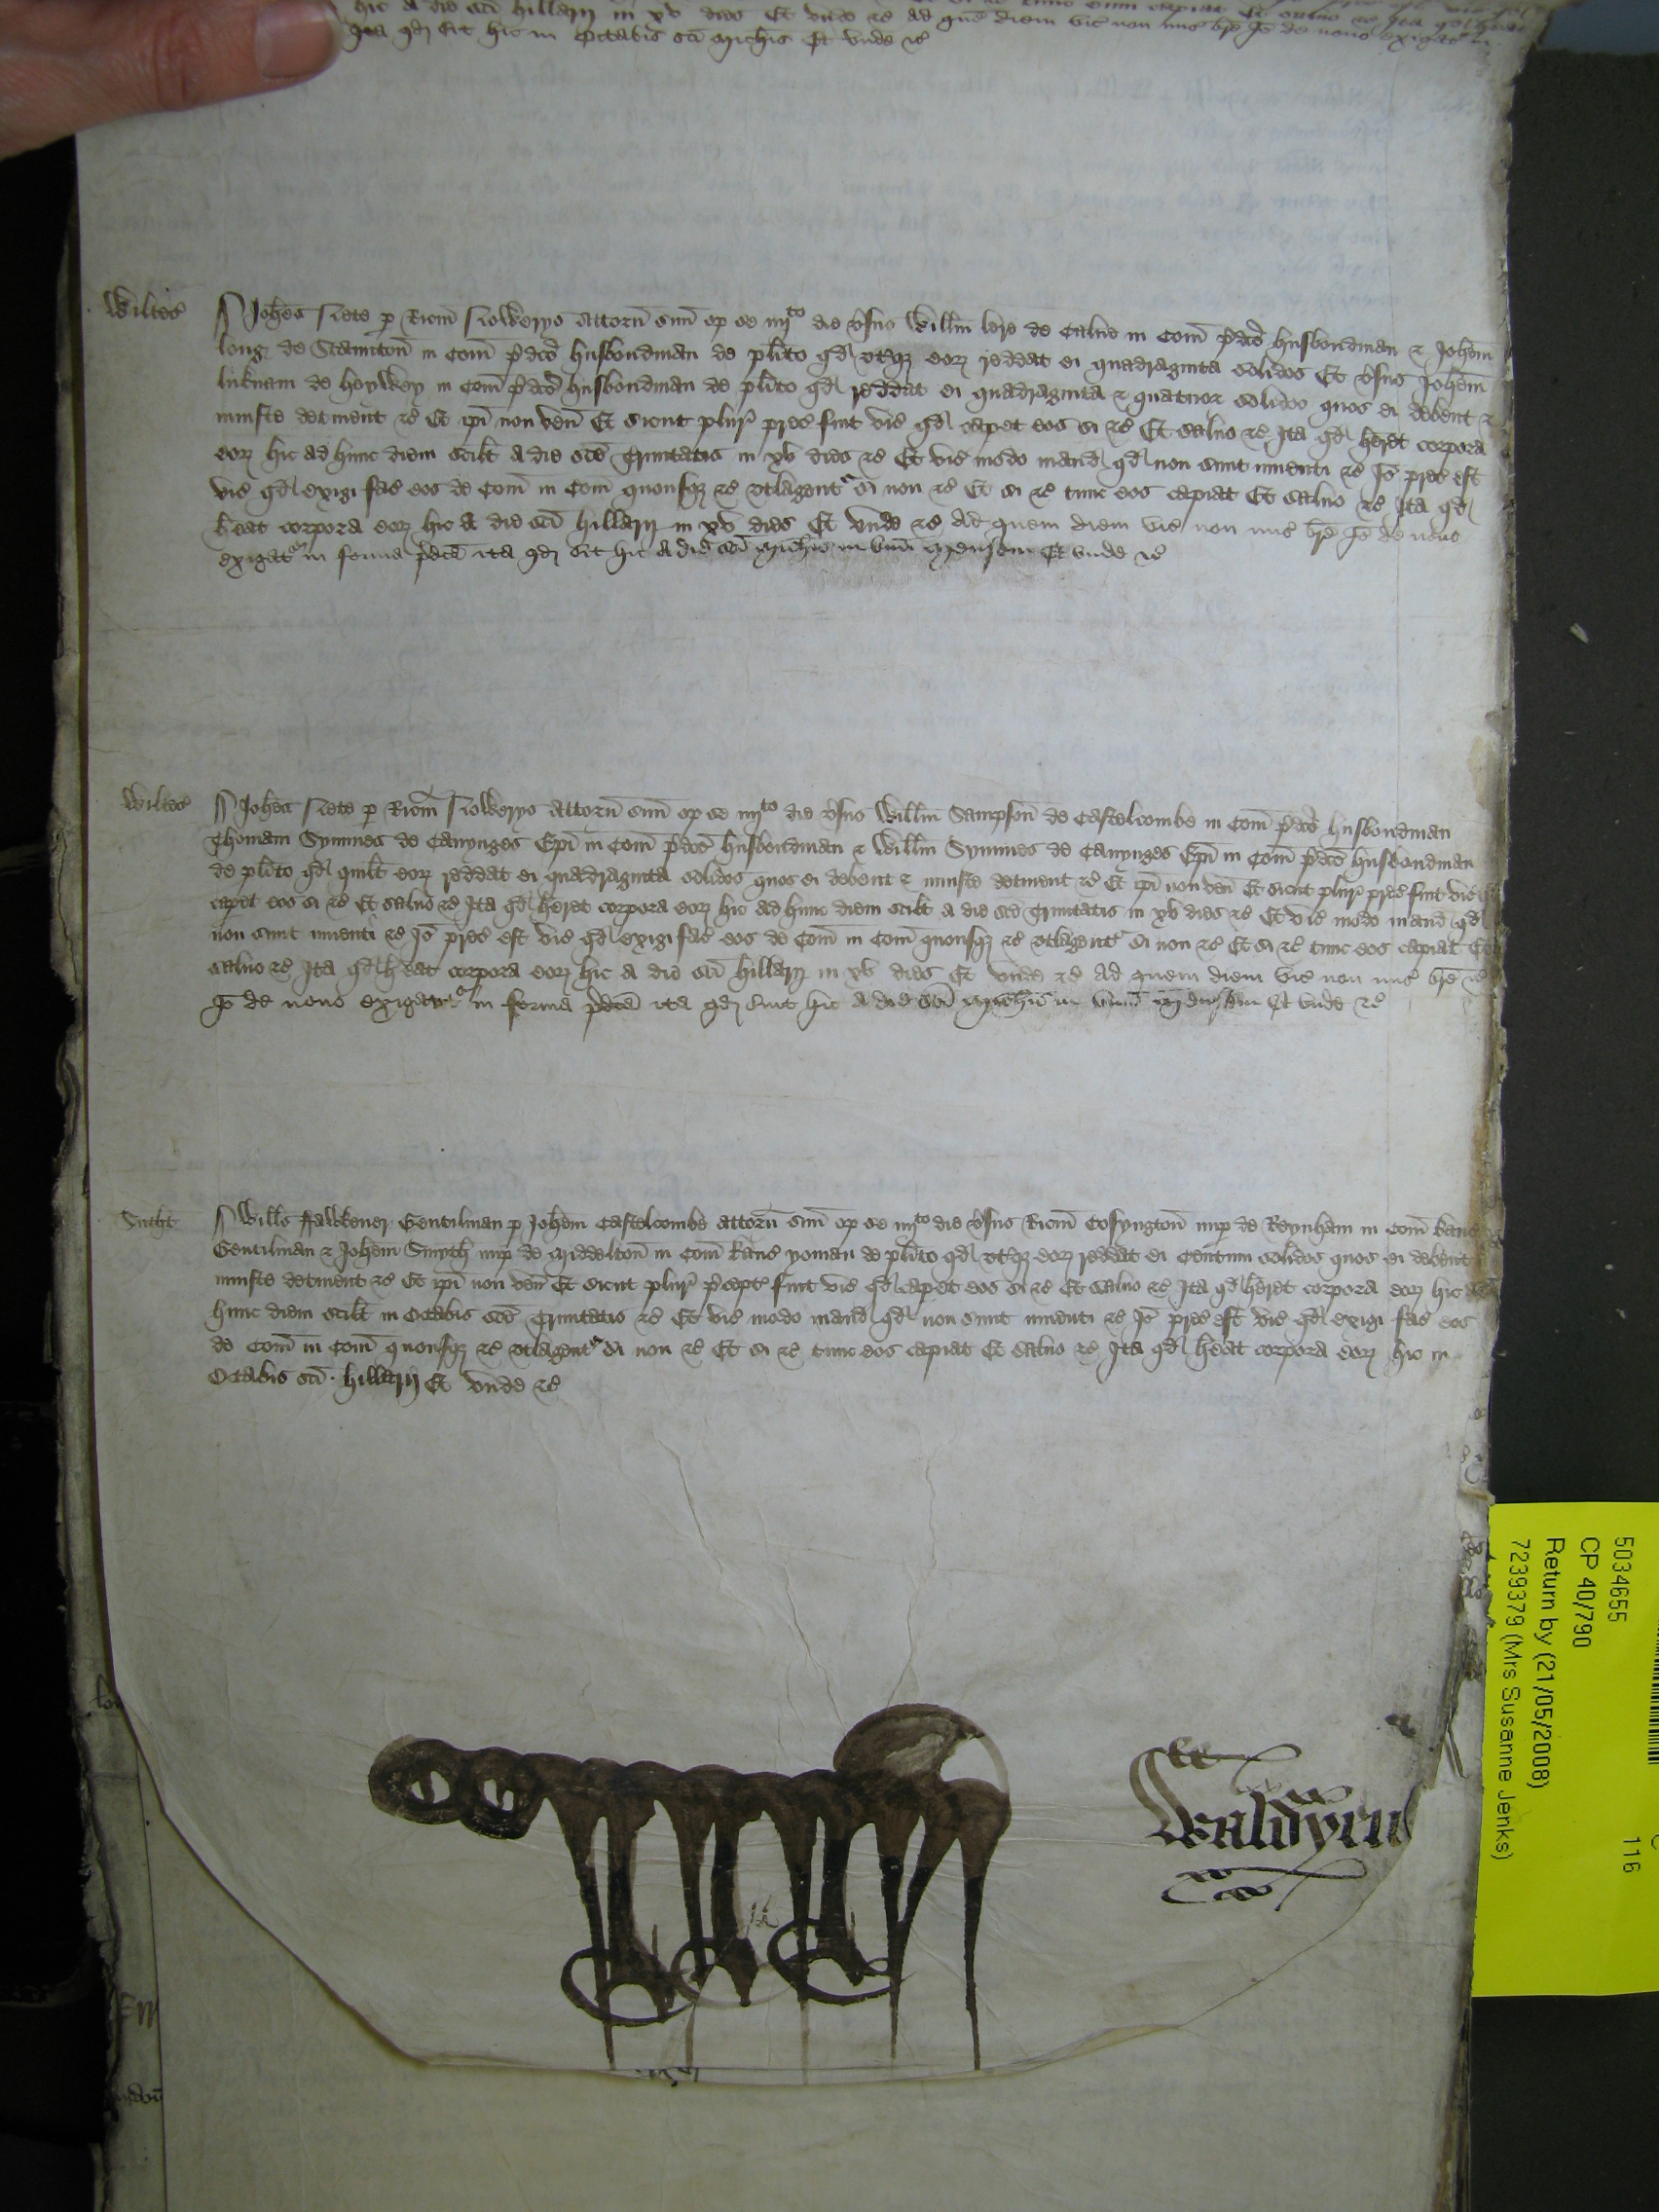 hic A die sci hillarij in xv dies Et unde re Ad que diem vic non mis bre Io de novo exigat in
ita qd sit hic in Octabis sci Michis Et unde re
Wiltes
Johes per Ricm attorn sum op se iiijto die vsus Willm de Calne in Com pdco husbondman & Johem
long de Stamiton in Com pdco husbondman de plito qd utrqz eorz reddat ei quadraginta solidos Et vsus Johem
de in Com pdco husbondman de plito qd reddat ei quadraginta & quatuor solidos quos ei debent &
iniuste detinent re Et ipi non ven Et sicut plur prec fuit vic qd capet eos si re Et salvo re Ita qd heret corpora
eorz hic ad hunc diem scilt a die sce Trinitatis in xv dies re Et vic modo mand qd non sunt inventi re Io prec est
vic qd exigi fac eos de Com in Com quousqz re utlagent si non re Et si re tunc eos capiat Et salvo re Ita qd
heat corpora eorz hic A die sci hillarij in xv dies Et unde re Ad quem diem vic non mis bre Io de novo
exigat in forma pdca ita qd sit hic A die sci Michis in unu mensem Et unde re
Wiltes
Johes per Ricm attorn sum op se iiijto die vsus Willm Sampson de Castelcombe in Com pdco husbondman
Thomam Symmes de Canynges Epi in Com pdco husbondman & Willm Symmes de Canynges Epi in Com pdco husbondman
de plito qd quilt eorz reddat ei quadraginta solidos quos ei debent & iniuste detinent re Et ipi non ven Et sicut plur prec fuit vic qd
capet eos si re Et salvo re Ita qd heret corpora eorz hic ad hunc diem scilt a die sce Trinitatis in xv dies re Et vic modo mand qd
non sunt inventi re Io prec est vic qd exigi fac eos de Com in Com quousqz re utlagent si non re Et si re tunc eos capiat Et
salvo re Ita qd heat corpora eorz hic a die sci hillarij in xv dies Et unde re Ad quem diem vic non mis bre re
Io de novo exigant in forma pdca ita qd sint hic A die sci Michis in unu mensem Et unde re
Sutht
Wills ffawkener Gentilman p Johem Castelcombe attorn sum op se iiijto die vsus Ricm Cosyngton nup de Reynham in Com kanc
Gentilman & Johem Smyth nup de Middelton in Com kanc yoman de plito qd utrqz eorz reddat ei Centum solidos quos ei debent
iniuste detinent re Et ipi non ven Et sicut plur pcept fuit vic qd capet eos si re Et salvo re Ita qd heret corpora eorz hic ad
hunc diem scilt in Octabis sce Trinitatis re Et vic modo mand qd non sunt inventi re Io prec est vic qd exigi fac eos
de Com in Com quousqz re utlagent si non re Et si re tunc eos capiat Et salvo re Ita qd heat corpora eorz hic in
Octabis sci hillarij Et unde re
5034655
CP 40/790
Return by (21/05/2008)
7239379 (Mrs Susanne Jenks)
116